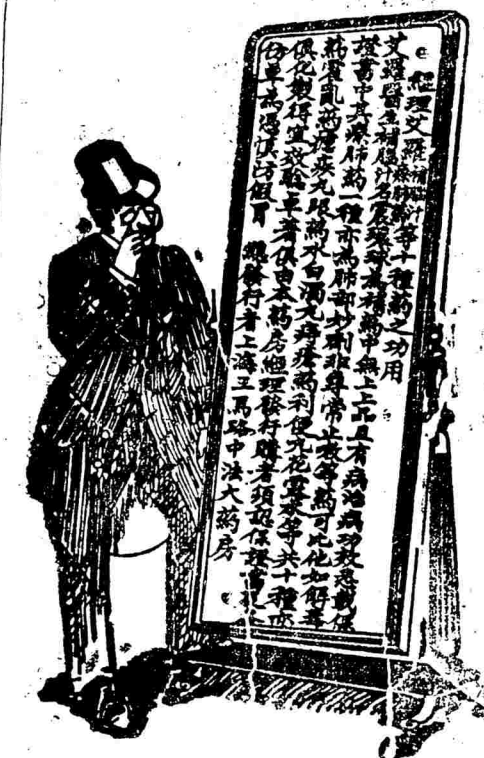 經理艾羅補腦汁療肺藥等十種藥之功用
艾羅醫生補腦汁名震環球為補藥中無上上品且有病治病功效悉載保
證書中其療肺藥一種亦為肺部妙劑非尋常止咳等藥可比他如解毒
藥霍亂藥瘧疾丸眼藥水白濁丸痔瘡藥利便丸花露水等共十種
俱化製得宜效驗卓著俱由本藥房經理發行購者須認保證書
仿單為憑慎防假冒 總發行者上海三馬路中法大藥房